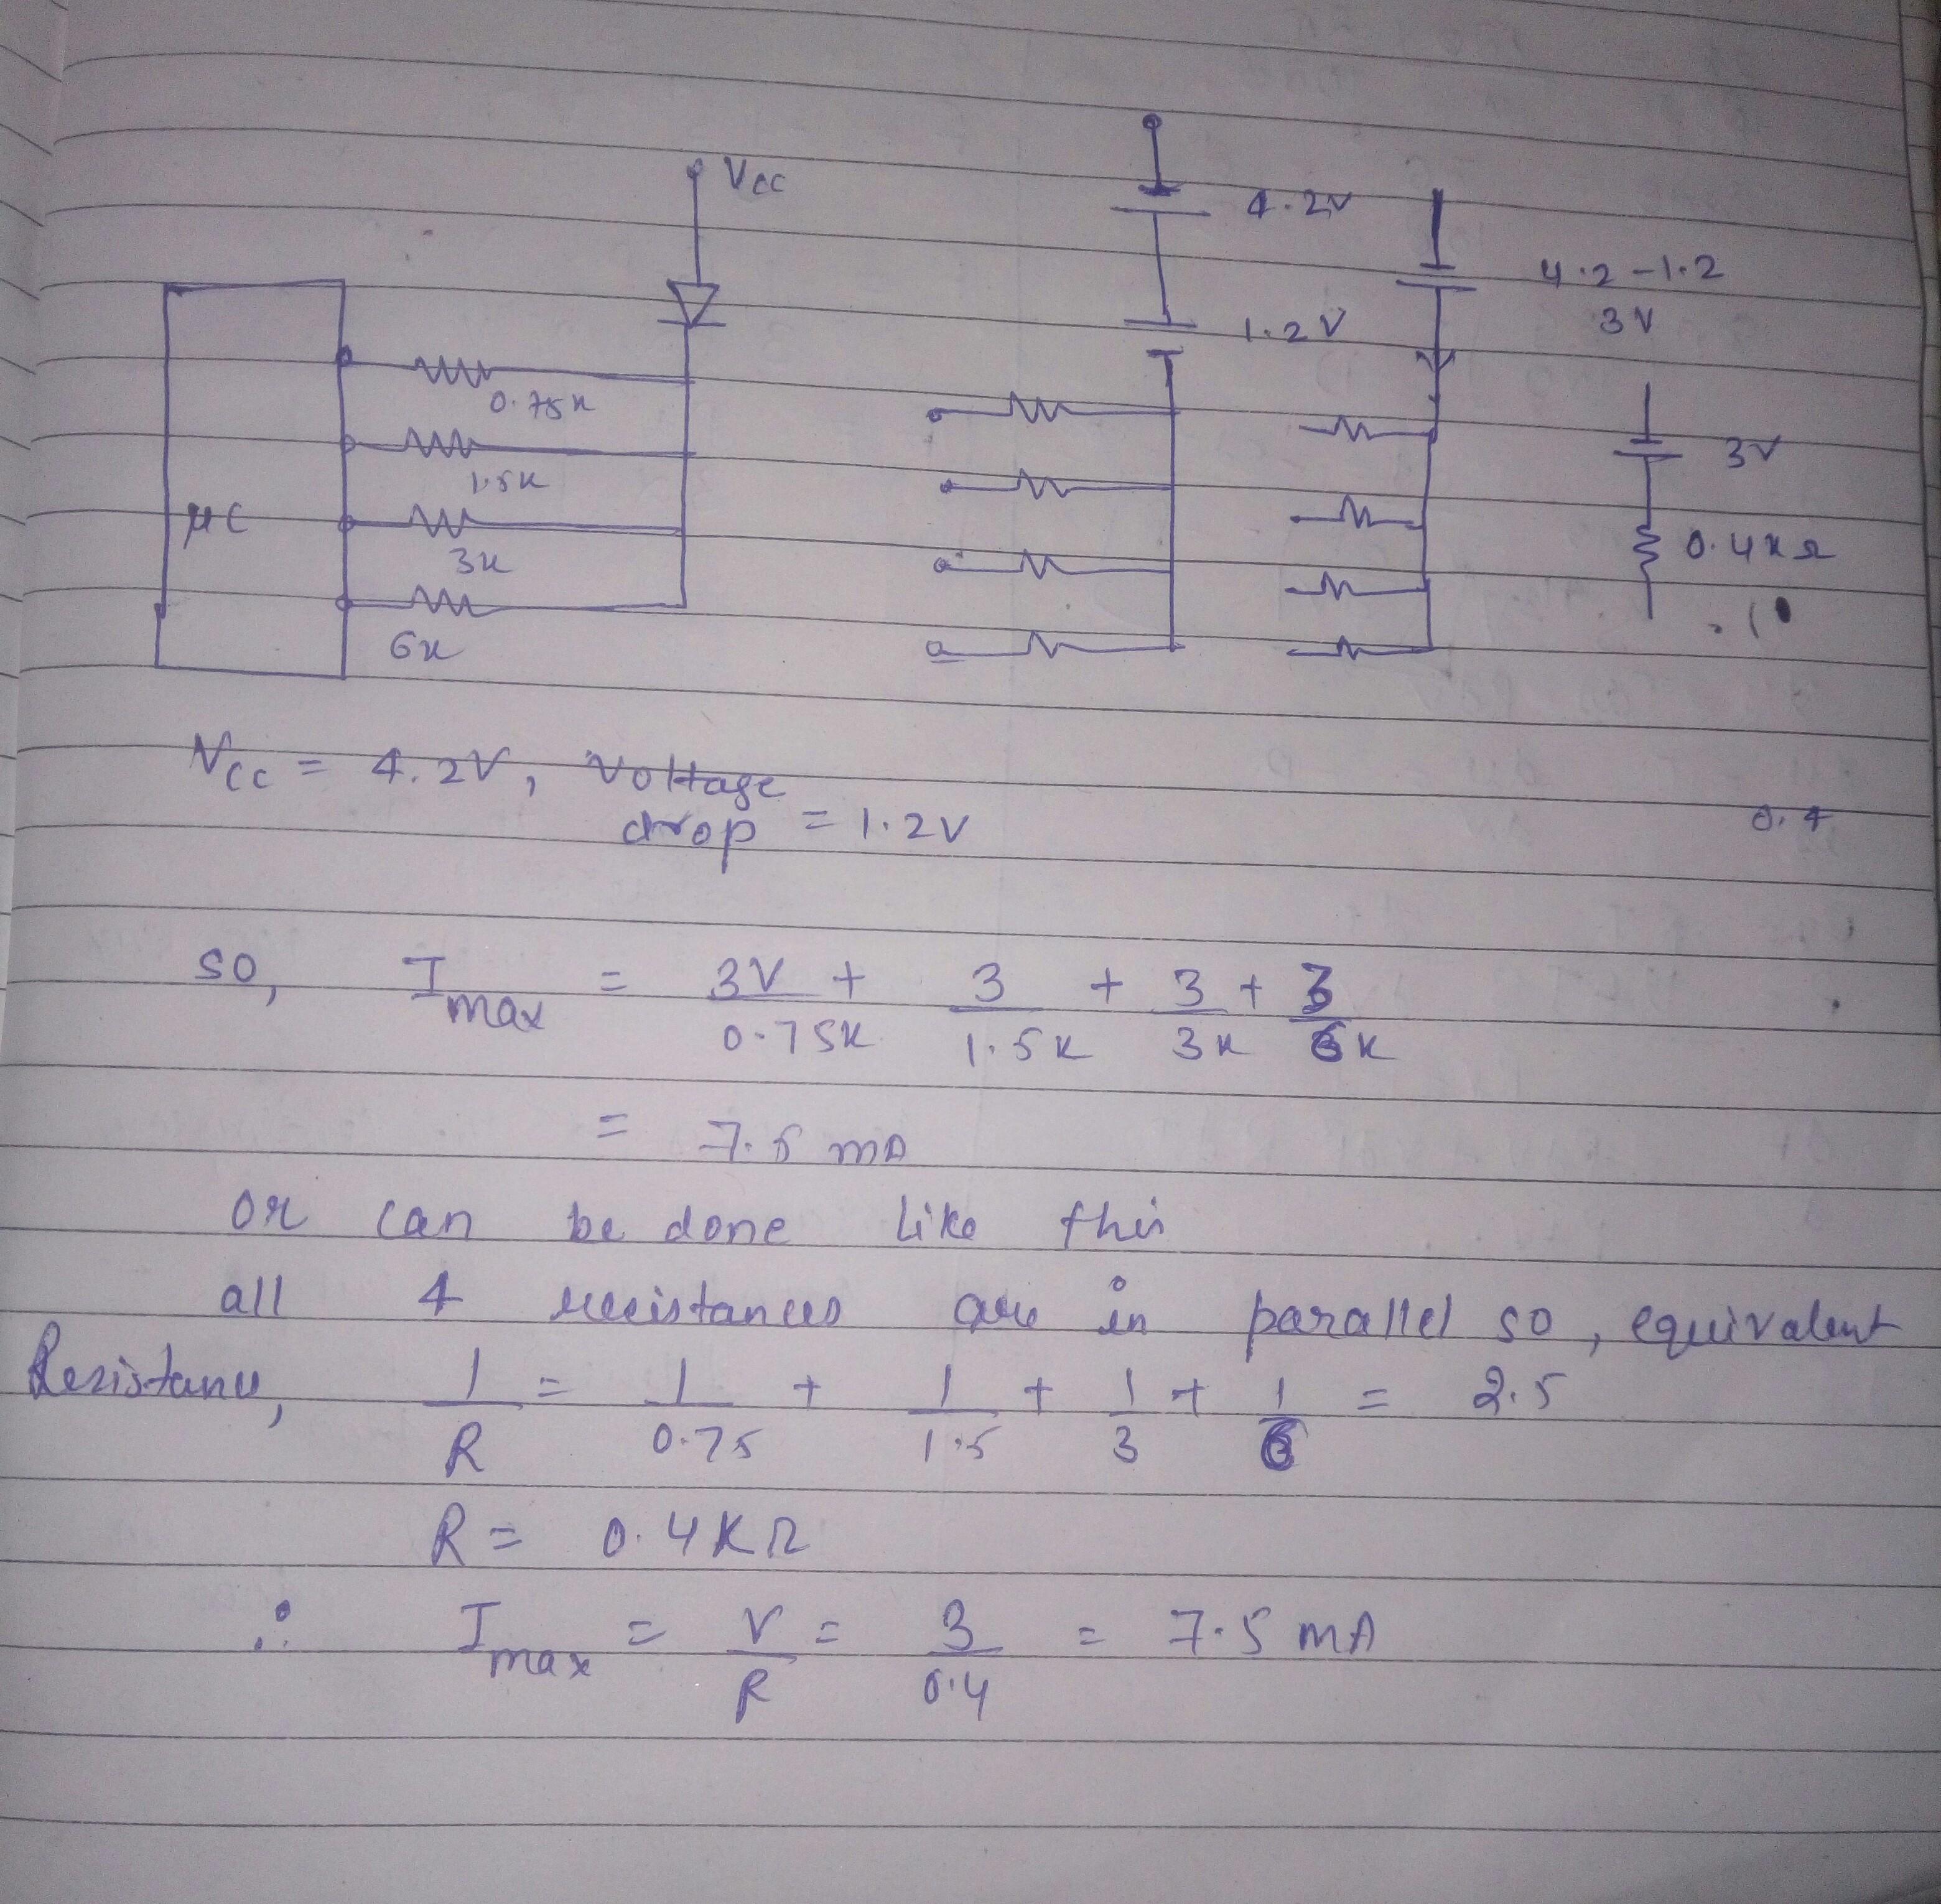 Vcc
4.2V
4.2-1.2
3V
1.2V
0.75K
1.5K
μC
3K
6K
3V
0.4KΩ
Vcc = 4.2V, Voltage
drop = 1.2V
0.4
so, Imax = 3V/0.75K + 3/1.5K + 3/3K + 3/6K
= 7.5 mA
or can be done like this
all 4 resistances are in parallel so, equivalent
Resistance, 1/R = 1/0.75 + 1/1.5 + 1/3 + 1/6 = 2.5
R = 0.4KΩ
∴ Imax = V/R = 3/0.4 = 7.5 mA